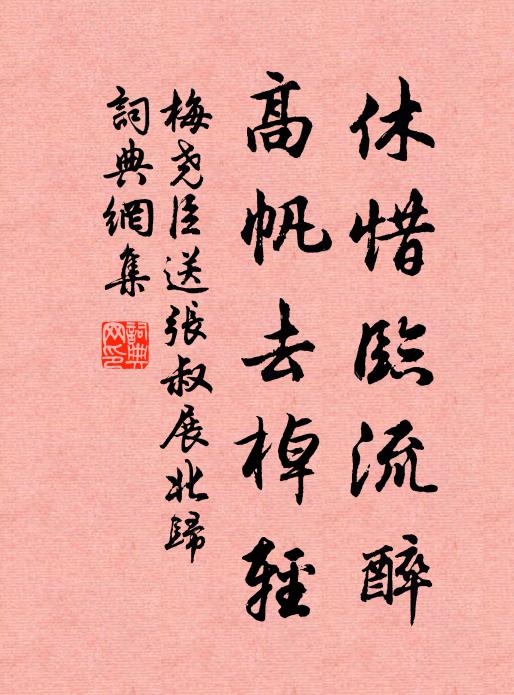 休惜臨流醉
高帆去棹輕
梅尧臣送張叔展北歸
詞典網集
詞典网印